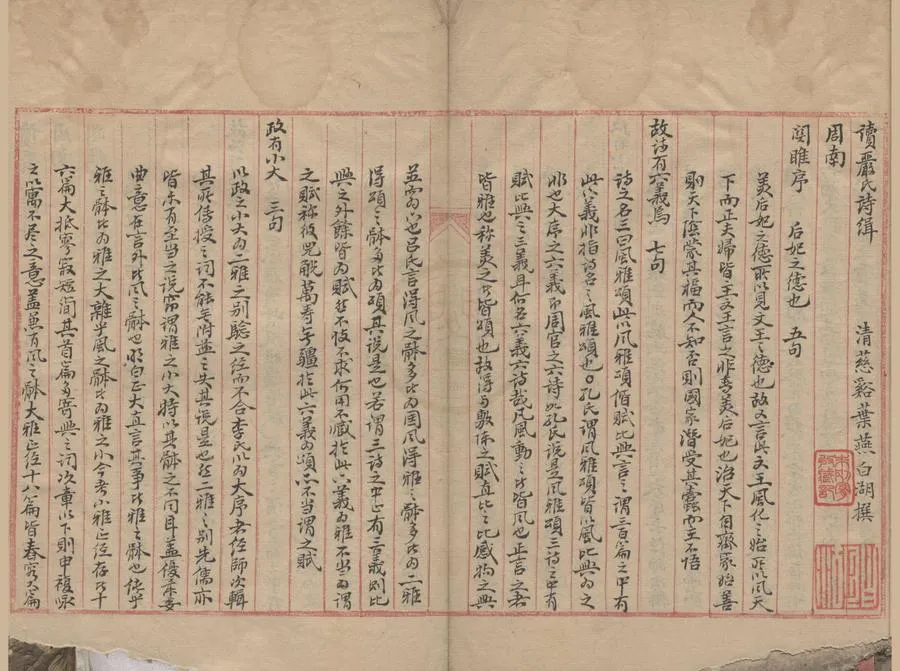 讀嚴氏詩緝　清慈谿葉燕白湖撰
周南
關雎序　后妃之德也　五句
美后妃之德所以見文王之德也故又言此文王風化之始所以風天
下而正夫婦皆主文王言之非專美后妃也治天下自齊家始善
則天下陰蒙其福而人不知否則國家潛受其蠹而主不悟
故詩有六義焉　七句
詩之名三曰風雅頌此以風雅頌偕賦比興言之謂三百篇之中有
此六義非指詩名之風雅頌也孔氏謂風雅頌皆以賦比興為之
非也大序之六義即周官之六詩如孔氏說是風雅頌三詩之中有
賦比興之三義耳何名六義六詩哉凡風動之者皆風也正言之者
皆雅也稱美之者皆頌也故得與敷陳之賦直比之比感物之興
並而為六也呂氏言得風之體多者為國風得雅之體多者為二雅
得頌之體多者為頌其說是也若謂三詩之中止有三義則比
興之外餘皆為賦於不忮不求何用不臧於此六義為雅不當為謂
之賦稱彼兕觥萬壽無疆於此六義為頌亦不當謂之賦
政有小大　三句
以政之小大為二雅之別驗之經而不合李氏以為大序者經師次輯
其所傳授之詞不能無附益之失其說是也然二雅之別先儒亦
皆未有至當之說竊謂雅之小大特以其體之不同耳蓋優柔委
曲意在言外者風之體也明白正大直言其事者雅之體也純乎
雅之體者為雅之大雜乎風之體者為雅之小今考小雅正經存者十
六篇大抵寂寥短簡其首篇多寄興之詞次章以下則申複詠
之以寓不盡之意蓋兼有風之體大雅正經十八篇皆舂容大篇